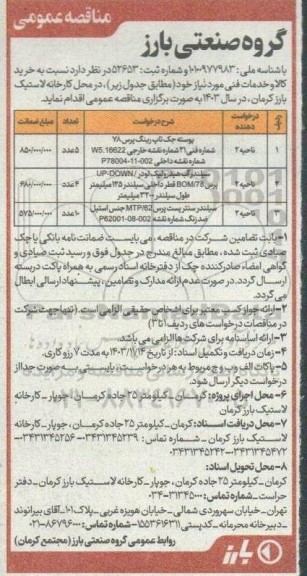 مناقصه عمومی
گروه صنعتی بارز
با شناسه ملی: ۱۰۱۰۰۹۷۷۹۸۳ و شماره ثبت: ۵۲۶۵۳ در نظر دارد نسبت به خرید
کالا و خدمات فنی مورد نیاز خود (مطابق جدول زیر)، در محل کارخانه لاستیک
بارز کرمان، در سال ۱۴۰۳ به صورت برگزاری مناقصه عمومی اقدام نماید.
ردیف درخواست دهنده شرح درخواست تعداد مبلغ ضمانت
۱ ناحیه ۲ پوسته جک تاپ رینگ پرس ۷۸ شماره فنی ۲۱ شماره نقشه خارجی W5.16622 شماره نقشه داخلی P78004-11-002 ۵ عدد ۸۵۰/۰۰۰/۰۰۰
۲ ناحیه ۲ سیلندر آب هیدرولیک لودر UP-DOWN/ پرس BOM/78 قطر داخلی سیلندر ۱۲۵ میلیمتر طول سیلندر ۳۲۰۰ میلیمتر ۴ عدد ۴۸۸/۰۰۰/۰۰۰
۳ ناحیه ۲ سیلندر سنتر پست پرس MTP/62 جنس استیل ضد زنگ شماره نقشه P62001-08-002 ۱۰ عدد ۵۷۵/۰۰۰/۰۰۰
۱- بابت تضامین شرکت در مناقصه، می بایست ضمانت نامه بانکی یا چک
صیادی ثبت شده، مطابق مبالغ مندرج در جدول فوق و رسید ثبت صیادی و
گواهی امضاء صادر کننده چک از دفترخانه اسناد رسمی به همراه پاکت دربسته
ارسال گردد. در صورت عدم ارائه مدارک و تضامین، پیشنهاد ارسالی ابطال
می گردد.
۲- ارائه جواز کسب معتبر برای اشخاص حقیقی الزامی است. (تنها جهت شرکت
در مناقصات درخواست های ردیف ۱ تا ۳)
۳- ارائه اساسنامه برای شرکت ها الزامی می باشد.
۴- زمان دریافت و تکمیل اسناد: از تاریخ ۱۴۰۳/۱۱/۱۴ به مدت ۷ روز کاری.
۵- پاکات الف و ب و ج مربوط به هر درخواست، بایستی به صورت جدا از
درخواست دیگر ارسال شود.
۶- محل اجرای پروژه: کرمان - کیلومتر ۲۵ جاده کرمان، جوپار - کارخانه
لاستیک بارز کرمان
۷- محل دریافت اسناد: کرمان - کیلومتر ۲۵ جاده کرمان، جوپار - کارخانه
لاستیک بارز کرمان - شماره تماس: ۰۳۴۳۱۳۴۵۲۳۹ - ۰۳۴۳۱۳۴۵۲۵۶ -
۰۳۴۳۱۳۴۵۲۴۲ - ۰۳۴۳۱۳۴۵۴۷۲
۸- محل تحویل اسناد:
کرمان - کیلومتر ۲۵ جاده کرمان، جوپار - کارخانه لاستیک بارز کرمان - دفتر
حراست - شماره تماس: ۳۱۳۴۵۰۰۰-۰۳۴
تهران - خیابان سهروردی شمالی - خیابان هویزه غربی - پلاک ۱۰۱ - آقای بیرانوند
- دبیرخانه محرمانه - کدپستی ۱۵۵۳۶۱۶۳۱۱ - شماره تماس: ۸۶۷۹۶۰۰۰-۰۲۱
روابط عمومی گروه صنعتی بارز (مجتمع کرمان)
بارز